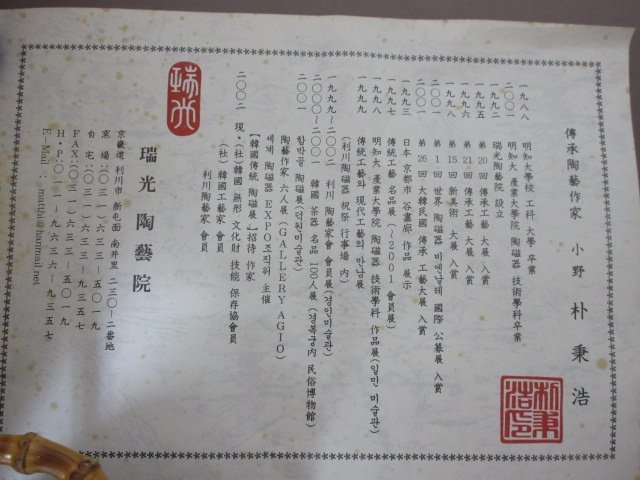 傳承陶藝作家 小野 朴秉浩
一九八八 明知大學校 工科 大學 卒業
二〇〇一 明知大 產業大學院 陶磁器 技術學科卒業
一九九二 瑞光陶藝院 設立
一九九五 第20回 傳承工藝 大展 入賞
一九九六 第21回 傳承工藝 大展 入賞
一九九八 第15回 新美術 大展 入賞
二〇〇一 第1回 世界 陶磁器 비엔날레 國際 公募展 入賞
二〇〇一 第26回 大韓民國 傳承 工藝大展 入賞
一九九三 日本 京都市 谷畫廊 作品 展示
一九九七 傳統工藝 名品展 (~2001 會員展)
一九九八 明知大 產業大學院 陶磁器 技術學科 作品展 (일민 미술관)
一九九九 傳統工藝와 現代工藝의 만남展
(利川陶磁器 祝祭 行事場 內)
一九九九~二〇〇二 利川 陶藝家會 會員展 (경인미술관)
二〇〇〇~二〇〇一 韓國 茶器 名品 100人展 (경복궁내 民俗博物館)
二〇〇一 함박골 陶磁展 (덕원미술관)
陶藝作家 六人展 (GALLERY AGIO)
세계 陶磁器 EXPO조직위 主催
【韓國傳統 陶磁展】招待 作家
二〇〇二 現・(社)韓國 無形 文化財 技能 保存協會員
・(社)韓國工藝家 會員
利川陶藝家 會員
瑞光
瑞光陶藝院
京畿道 利川市 新屯面 南井里 二三〇-二番地
窯 場:〇三一)六三三-五〇一九
自 宅:〇三一)六三三-九三五七
FAX:〇三一)六三三-五〇一九
H・P:〇一一-九七三六-九三五七
朴秉浩印